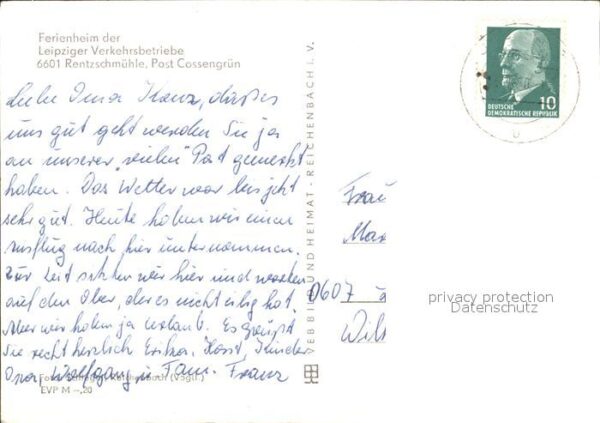 Ferienheim der
Leipziger Verkehrsbetriebe
6601 Rentzschmühle, Post Cossengrün
Liebe Oma Kranz, daß es
uns gut geht werden Sie ja
an unserer "vielen" Post gemerkt
haben. Das Wetter war bis jetzt
sehr gut. Heute haben wir einen
Ausflug nach hier unternommen.
Zur Zeit sitzen wir hier und warten
auf den Ober, der es nicht eilig hat.
Aber wir haben ja Urlaub. Es grüßt
Sie recht herzlich Erika, Horst, Kinder
Oma, Wolfgang u. Fam. Franz
Reichenbach (Vogtl.)
EVP M -,20
VEB BILD UND HEIMAT · REICHENBACH i. V.
10
DEUTSCHE
DEMOKRATISCHE REPUBLIK
Frau
Max
0607
Wil
privacy protection
Datenschutz